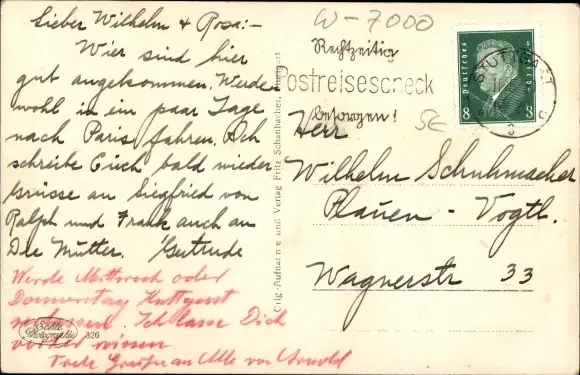 Lieber Wilhelm & Rosa:-
Wier sind hier
gut angekommen. Werden
wohl in ein paar Tage
nach Paris fahren. Ich
schreibe Euch bald wieder
Grüsse an Siegfried von
Ralph und Frank auch an
Die Mutter. Gertrude
Werde Mittwoch oder
Donnerstag Stuttgart
verlassen. Ich lasse Dich
vorher wissen
Viele Grüße an Alle von Arnold
Echte
Photographie
326
Orig.-Aufnahme und Verlag Fritz Schanbacher, Stuttgart
W-7000
Rechtzeitig
Postreisescheck
besorgen!
5€
STUTTGART
Deutsches Reich
8 8
Herr
Wilhelm Schuhmacher
Plauen - Vogtl.
Wagnerstr 33